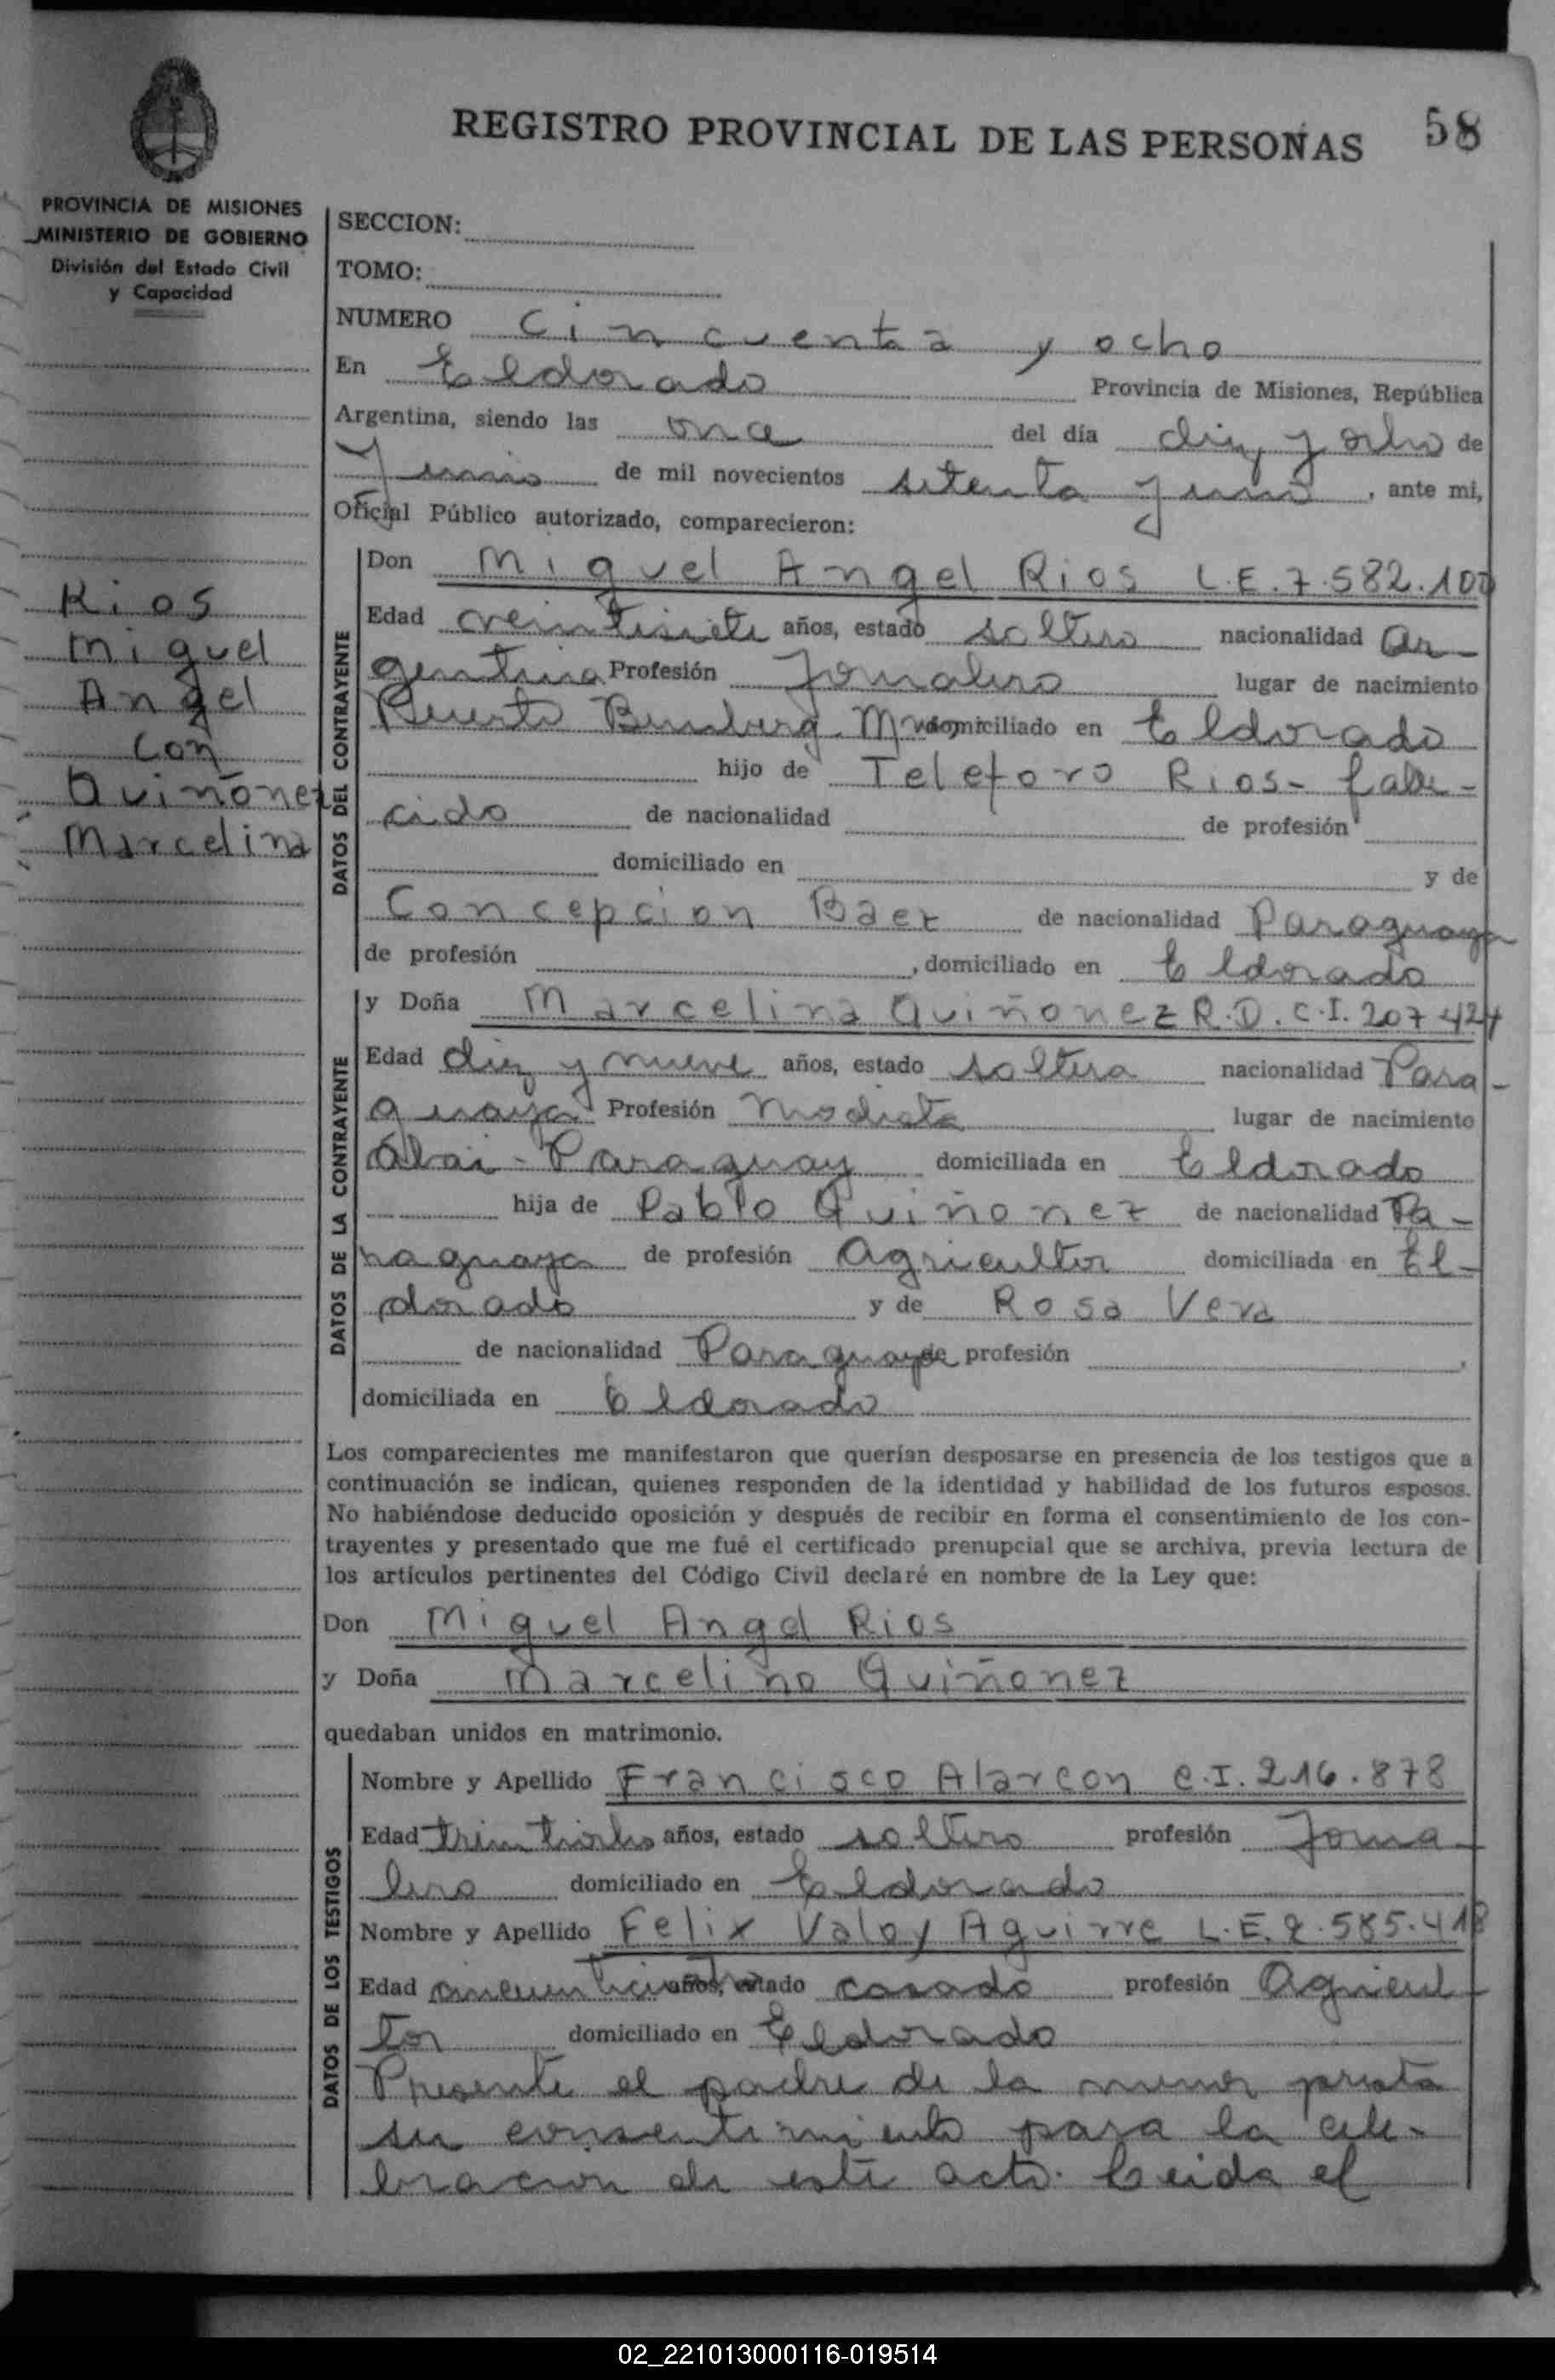 REGISTRO PROVINCIAL DE LAS PERSONAS 58
PROVINCIA DE MISIONES
MINISTERIO DE GOBIERNO
División del Estado Civil
y Capacidad
Rios
Miguel
Angel
con
Quiñonez
Marcelina
SECCION:
TOMO:
NUMERO Cincuenta y ocho
En Eldorado Provincia de Misiones, República
Argentina, siendo las once del día diez y ocho de
Junio de mil novecientos setenta y uno, ante mi,
Oficial Público autorizado, comparecieron:
DATOS DEL CONTRAYENTE
Don Miguel Angel Rios L.E.7.582.100
Edad veintisiete años, estado soltero nacionalidad Ar-
gentina Profesión Jornalero lugar de nacimiento
Puerto Bemberg. domiciliado en Eldorado
hijo de Teleforo Rios- falle-
cido de nacionalidad de profesión
domiciliado en y de
Concepcion Baez de nacionalidad Paraguaya
de profesión , domiciliado en Eldorado
DATOS DE LA CONTRAYENTE
y Doña Marcelina Quiñonez R.D.C.I. 207424
Edad diez y nueve años, estado soltera nacionalidad Para-
guaya Profesión Modista lugar de nacimiento
Abai - Paraguay domiciliada en Eldorado
hija de Pablo Quiñonez de nacionalidad Pa-
raguaya de profesión Agricultor domiciliada en El-
dorado y de Rosa Vera
de nacionalidad Paraguaya de profesión ,
domiciliada en Eldorado
Los comparecientes me manifestaron que querían desposarse en presencia de los testigos que a
continuación se indican, quienes responden de la identidad y habilidad de los futuros esposos.
No habiéndose deducido oposición y después de recibir en forma el consentimiento de los con-
trayentes y presentado que me fué el certificado prenupcial que se archiva, previa lectura de
los artículos pertinentes del Código Civil declaré en nombre de la Ley que:
Don Miguel Angel Rios
y Doña Marcelina Quiñonez
quedaban unidos en matrimonio.
DATOS DE LOS TESTIGOS
Nombre y Apellido Francisco Alarcon C.I. 216.878
Edad treintiocho años, estado soltero profesión Jorna-
lero domiciliado en Eldorado
Nombre y Apellido Felix Valoy Aguirre L.E. 585.418
Edad años, estado casado profesión Agricul-
tor domiciliado en Eldorado
Presente el padre de la menor presta
su consentimiento para la cele-
bracion de este acto. Leida el
02_221013000116-019514